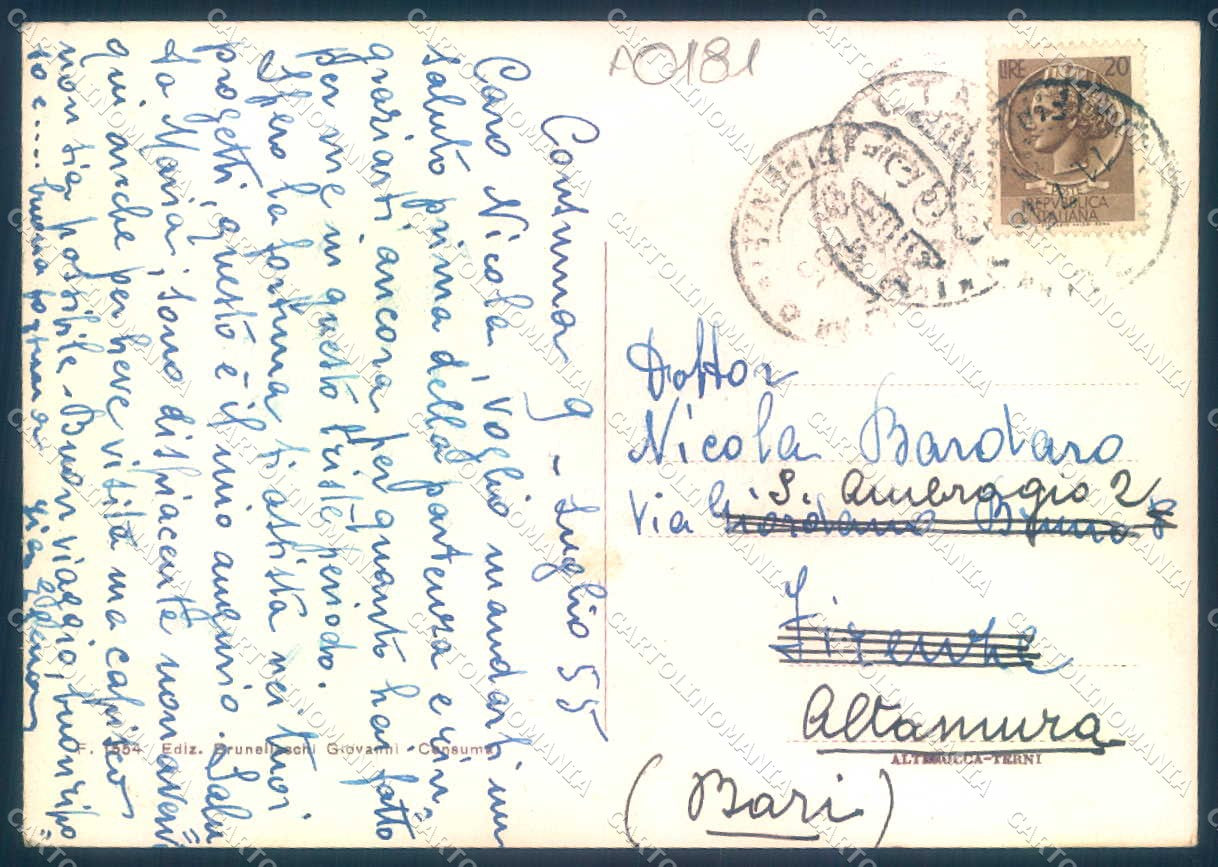 A0181
LIRE 20
REPVBBLICA
ITALIANA
Consuma 9 - Luglio 55
Caro Nicola, voglio mandarti un
saluto prima della partenza e rin=
graziarti ancora per quanto hai fatto
per me in questo triste periodo.
Spero la fortuna ti assista nei tuoi
progetti, questo è il mio augurio. Salu
ta Maria, sono dispiacente non aver=
qui anche per breve visita ma capisco
non sia possibile - Buon viaggio, buon ripo=
so e..... buona fortuna
Dottor
Nicola Bardaro
Via Giordano Bruno
S. Ambrogio 2
Firenze
Altamura
(Bari)
F. 1554 Ediz. Brunelleschi Giovanni - Consuma
ALTEROCCA-TERNI
CARTOLINOMANIA